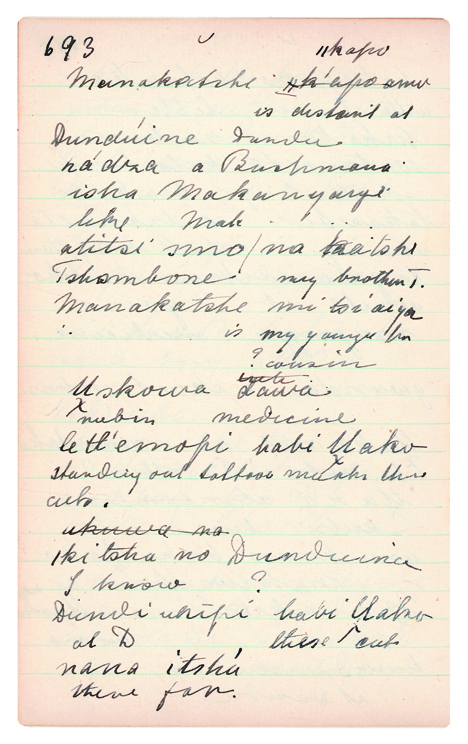 693 ǁkapo
Manakatshe ǁk'apo amo
is distant at
Dundúine Dandu
nádza a Bushmana
isha Makanyargi
like Mak
atitsi smo/na
Tshambone my brother T.
Manakatshe mi tsi aiya
is my younger bro
? cousin
Uskowa dawa
rubin medicine
letl'emopi habi Uako
standing out
cuts.
ukuwa na
ikitsha no Dunduina
I know ?
Dundi ukipi habi Uako
at D these cuts
nana itshá
there far.